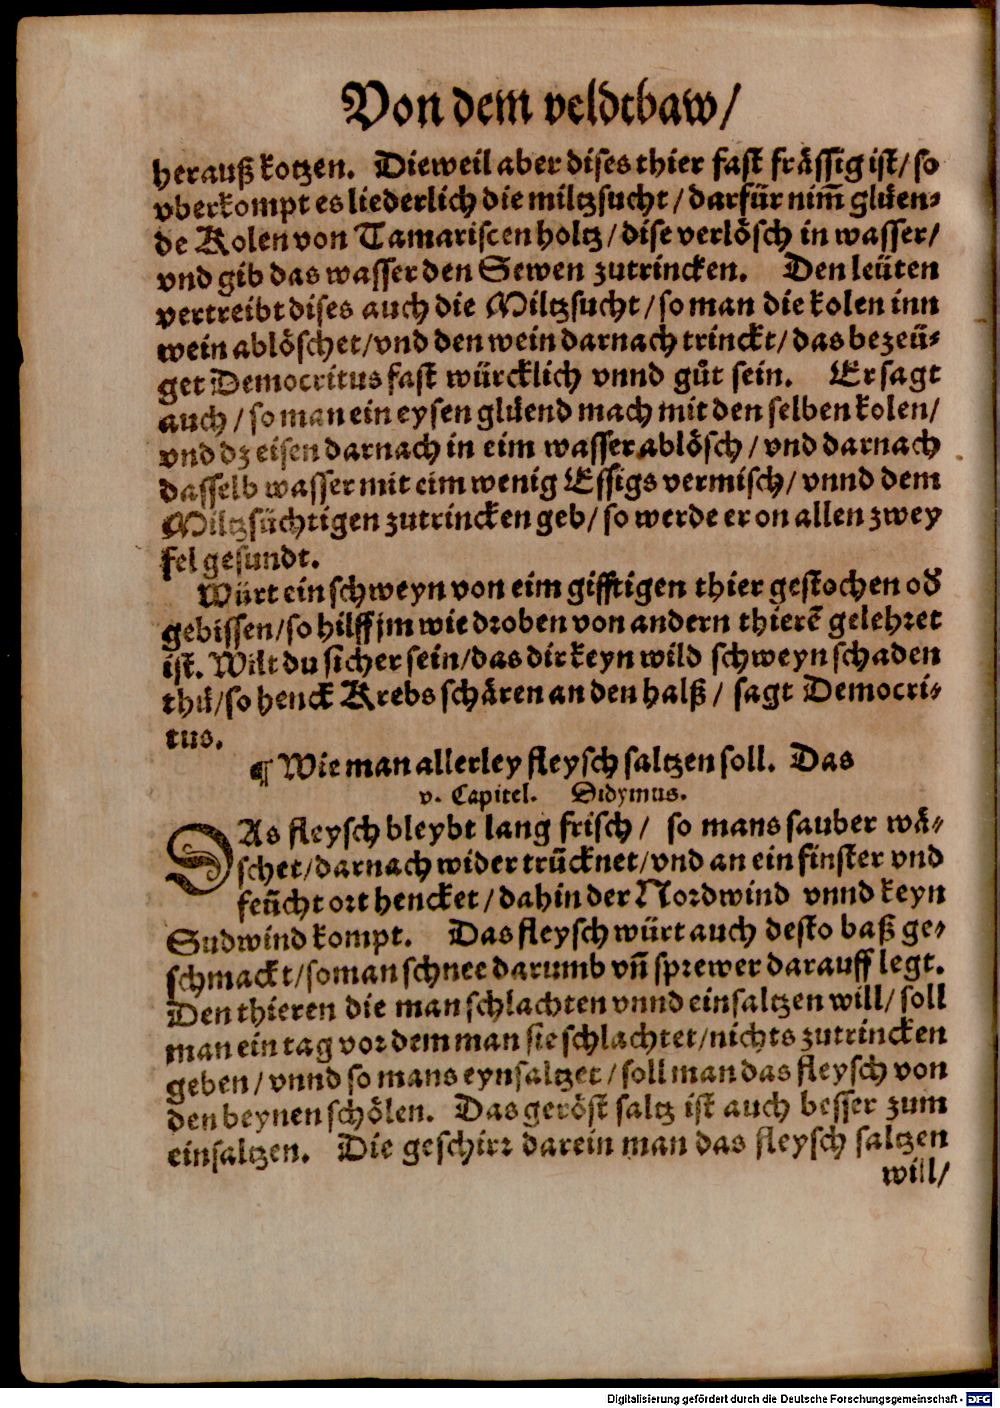 Von dem veldtbaw/
herauß kotzen. Dieweil aber dises thier fast frässig ist/ so
vberkompt es liederlich die miltzsucht / darfür nim̃ glüen-
de Kolen von Tamariscen holtz / dise verlösch in wasser/
vnd gib das wasser den Sewen zutrincken. Den leüten
vertreibt dises auch die Miltzsucht / so man die kolen inn
wein ablöschet/vnd den wein darnach trinckt/ das bezeü-
get Democritus fast würcklich vnnd gůt sein. Er sagt
auch / so man ein eysen glüend mach mit den selben kolen/
vnd dz eisen darnach in eim wasser ablösch / vnd darnach
dasselb wasser mit eim wenig Essigs vermisch/ vnnd dem
Miltzsüchtigen zutrincken geb/ so werde er on allen zwey
fel gesundt.
Würt ein schweyn von eim gifftigen thier gestochen od̕
gebissen/so hilff jm wie droben von andern thierẽ gelehret
ist. Wilt du sicher sein/das dir keyn wild schweyn schaden
thů/so henck Krebs schären an den halß / sagt Democri-
tus.
¶ Wie man allerley fleysch saltzen soll. Das
v. Capitel. Didymus.
DAs fleysch bleybt lang frisch / so mans sauber wä-
schet/darnach wider trücknet/vnd an ein finster vnd
feücht ort hencket / dahin der Nordwind vnnd keyn
Sudwind kompt. Das fleysch würt auch desto baß ge-
schmackt/so man schnee darumb vñ sprewer darauff legt.
Den thieren die man schlachten vnnd einsaltzen will/ soll
man ein tag vor dem man sie schlachtet/nichts zutrincken
geben / vnnd so mans eynsaltzet / soll man das fleysch von
den beynen schölen. Das geröst saltz ist auch besser zum
einsaltzen. Die geschirr darein man das fleysch saltzen
will/
Digitalisierung gefördert durch die Deutsche Forschungsgemeinschaft - DFG